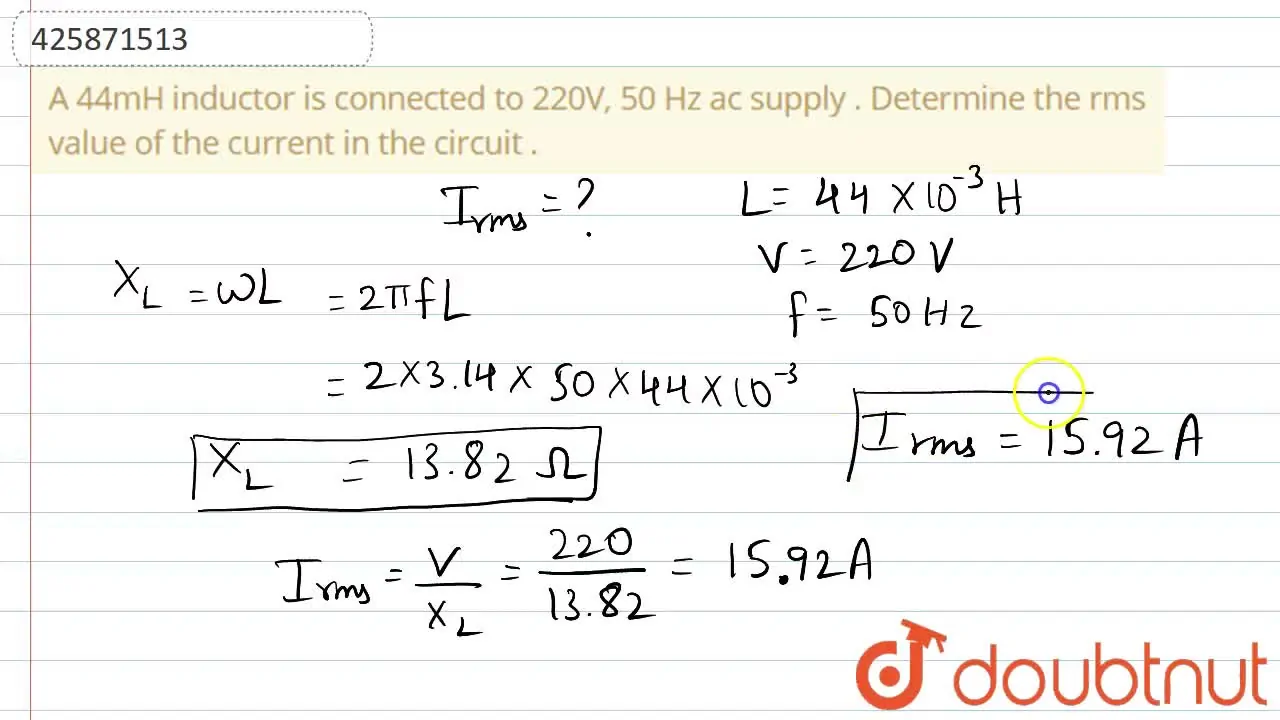 425871513
A 44mH inductor is connected to 220V, 50 Hz ac supply . Determine the rms
value of the current in the circuit .
Irms = ?
L = 44 × 10⁻³ H
V = 220 V
f = 50 Hz
X_L = ωL = 2πfL
= 2 × 3.14 × 50 × 44 × 10⁻³
X_L = 13.82 Ω
Irms = 15.92 A
Irms = V/X_L = 220/13.82 = 15.92A
doubtnut